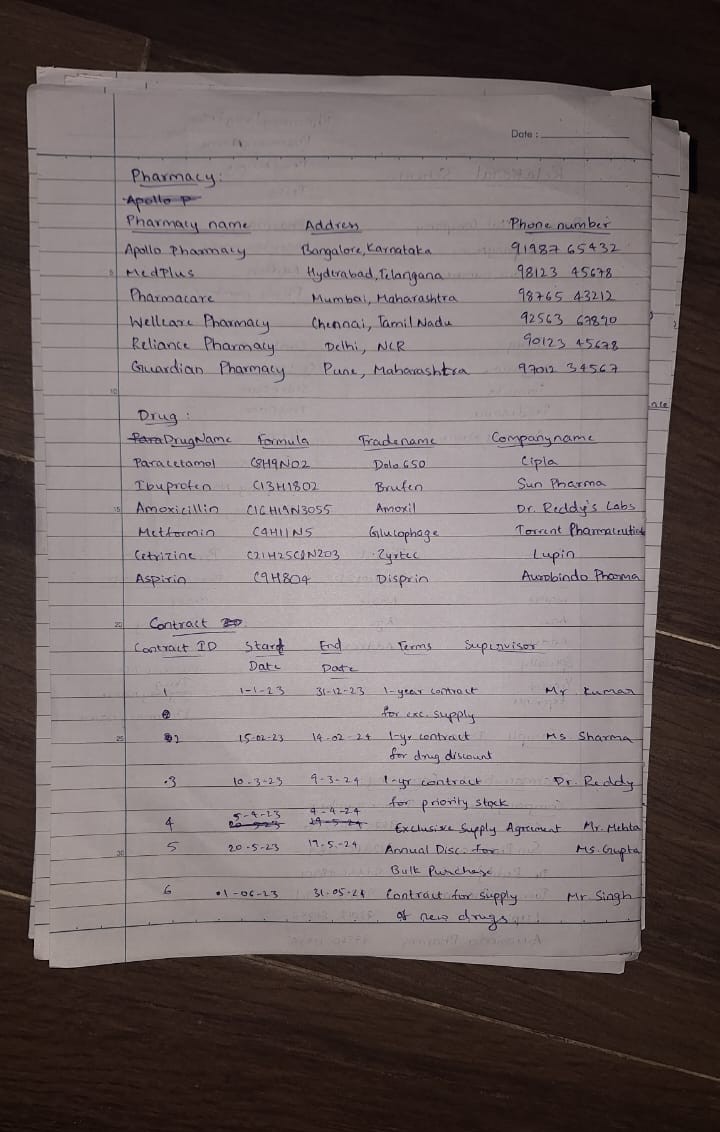 Date :
Pharmacy:
Apollo P
Pharmacy name Address Phone number
Apollo Pharmacy Bangalore, Karnataka 91987 65432
MedPlus Hyderabad, Telangana 98123 45678
Pharmacare Mumbai, Maharashtra 98765 43212
Wellcare Pharmacy Chennai, Tamil Nadu 92563 67890
Reliance Pharmacy Delhi, NCR 90123 45678
Guardian Pharmacy Pune, Maharashtra 97012 34567
Drug :
Para DrugName Formula Tradename Companyname
Paracetamol C8H9NO2 Dolo 650 Cipla
Ibuprofen C13H18O2 Brufen Sun Pharma
Amoxicillin C16H19N3O5S Amoxil Dr. Reddy's Labs
Metformin C4H11N5 Glucophage Torrent Pharmaceutical
Cetrizine C21H25ClN2O3 Zyrtec Lupin
Aspirin C9H8O4 Disprin Aurobindo Pharma
20 Contract
Contract ID Start End Terms Supervisor
Date Date
1 1-1-23 31-12-23 1-year contract Mr. Kumar
for exc. supply
25 2 15-02-23 14-02-24 1-yr contract Ms Sharma
for drug discount
3 10-3-23 9-3-24 1-yr contract Dr. Reddy
for priority stock
4 5-4-23 4-4-24 Exclusive Supply Agreement Mr. Mehta
30 5 20-5-23 19-5-24 Annual Disc. for Ms. Gupta
Bulk Purchase
6 01-06-23 31-05-24 Contract for supply Mr Singh
of new drugs